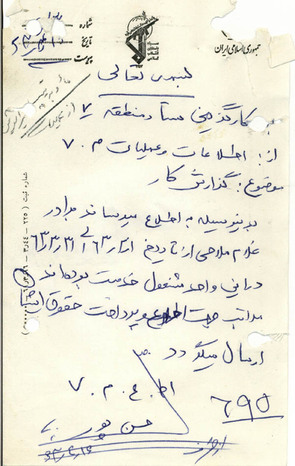 جمهوری اسلامی ایران
شماره
تاریخ
پیوست
بسمه تعالی
به: کارگزینی ستاد منطقه ۷
از: اطلاعات و عملیات م.۷
موضوع: گزارش کار
بدینوسیله به اطلاع میرساند برادر
غلام ملاحی از تاریخ ۶۳/۳/۱ الی ۶۳/۳/۳۱
در این واحد مشغول خدمت بوده‌اند
مراتب جهت اطلاع و پرداخت حقوق ایشان
ارسال میگردد
اط.ع.م.۷
حسن پور
۶۹۵